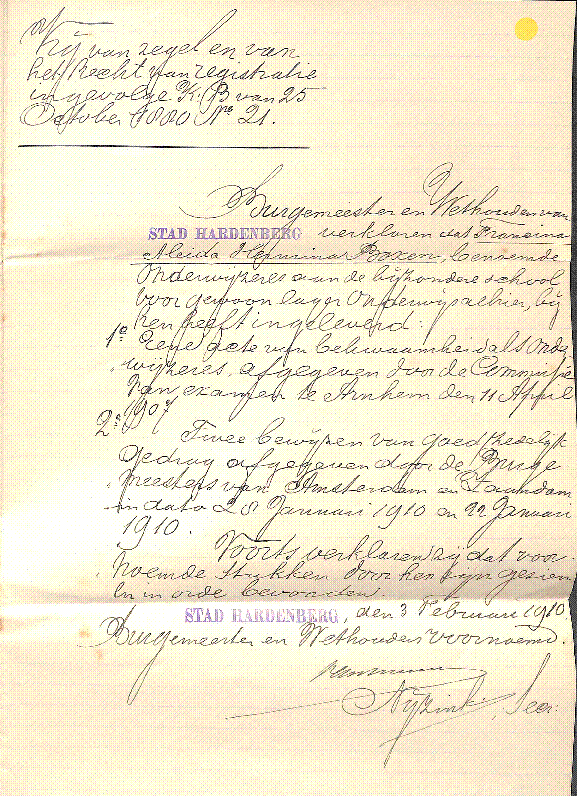 Vrij van zegel en van
het Recht van registratie
ingevolge K. B van 25
October 1880 No 21.
Burgemeester en Wethouders van
STAD HARDENBERG verklaren dat Francina
Aleida Hermina Boxen, benoemde
Onderwijzeres aan de bijzondere school
voor gewoon lager Onderwijs alhier, bij
hen heeft ingeleverd:
1o Eene acte van bekwaamheid als Onder
wijzeres, afgegeven door de Commissie
van examen te Arnhem den 11 April
1907
2o Twee bewijzen van goed zedelijk
gedrag afgegeven door de Burge
meesters van Amsterdam en Zaandam
in dato 28 Januari 1910 en 22 Januari
1910.
Voorts verklaren zij dat voor
noemde stukken door hen zijn gezien
en in orde bevonden.
STAD HARDENBERG, den 3 Februari 1910
Burgemeester en Wethouders voornoemd.
Nijzink, Secr.